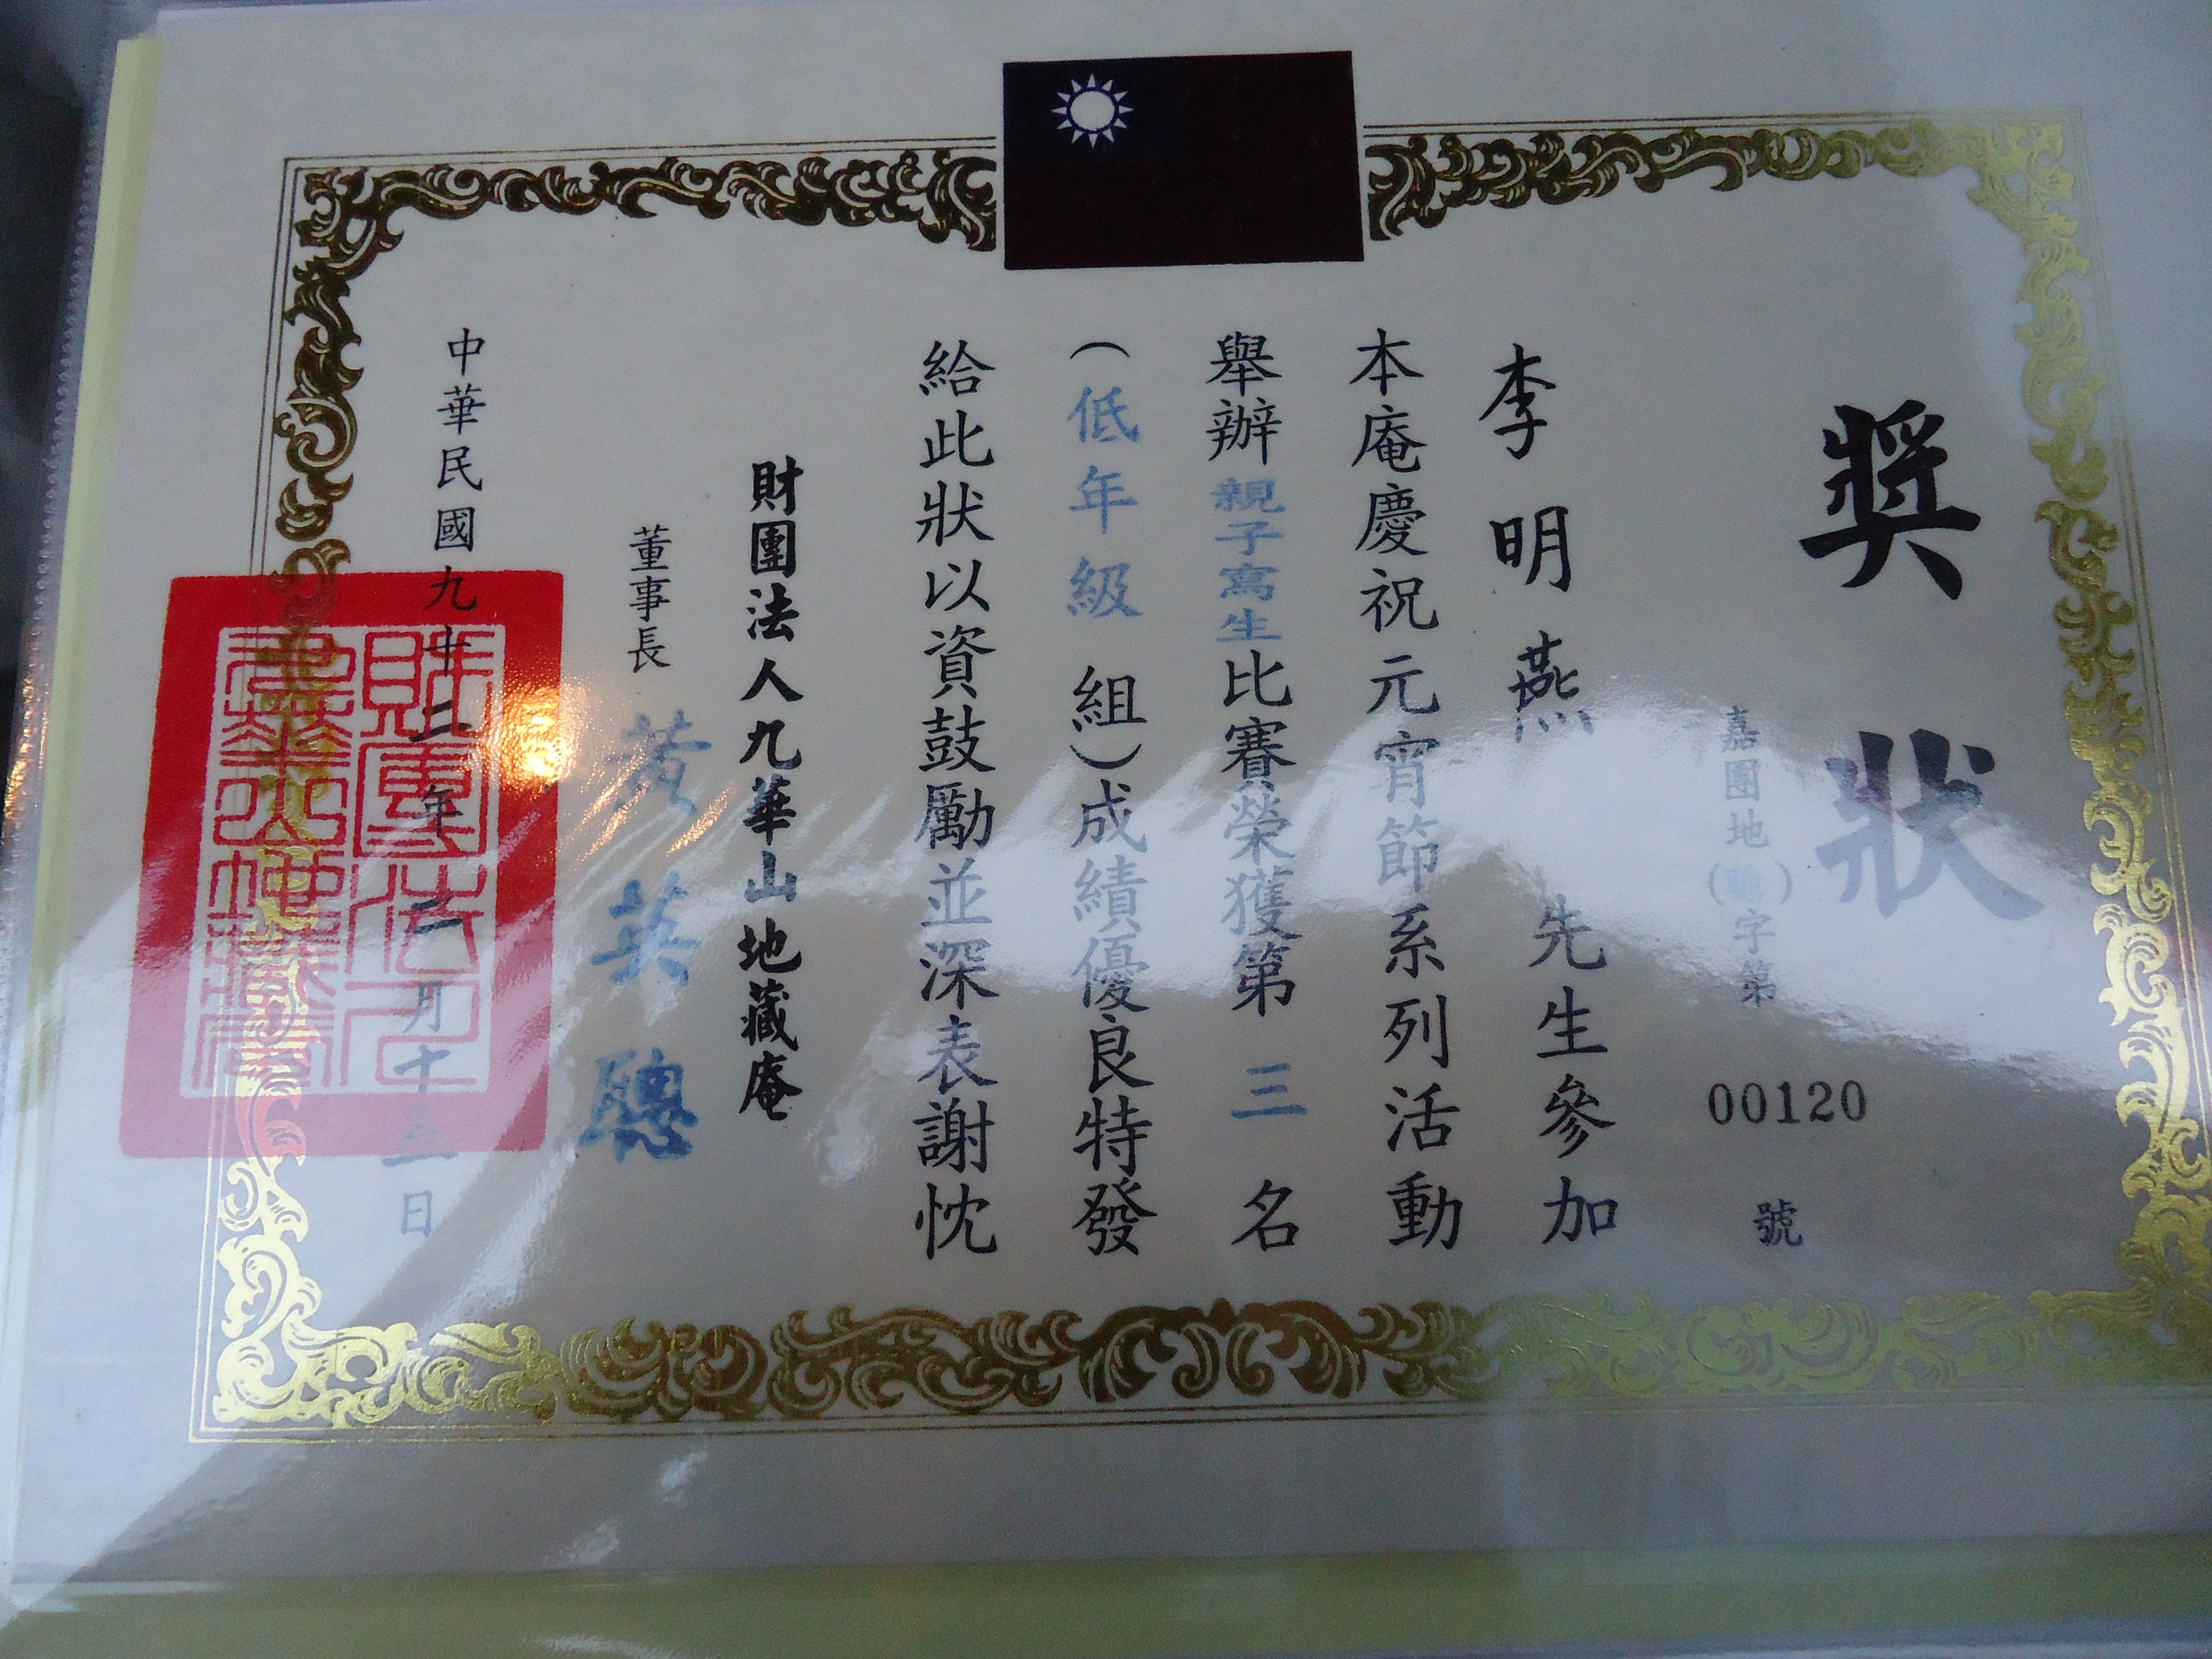 獎狀
嘉團地(聰)字第00120號
李明燕 先生參加
本庵慶祝元宵節系列活動
舉辦親子寫生比賽榮獲第三名
(低年級組)成績優良特發
給此狀以資鼓勵並深表謝忱
財團法人九華山地藏庵
董事長 黃英聰
中華民國九十二年二月十五日
財團法人
九華山地藏庵